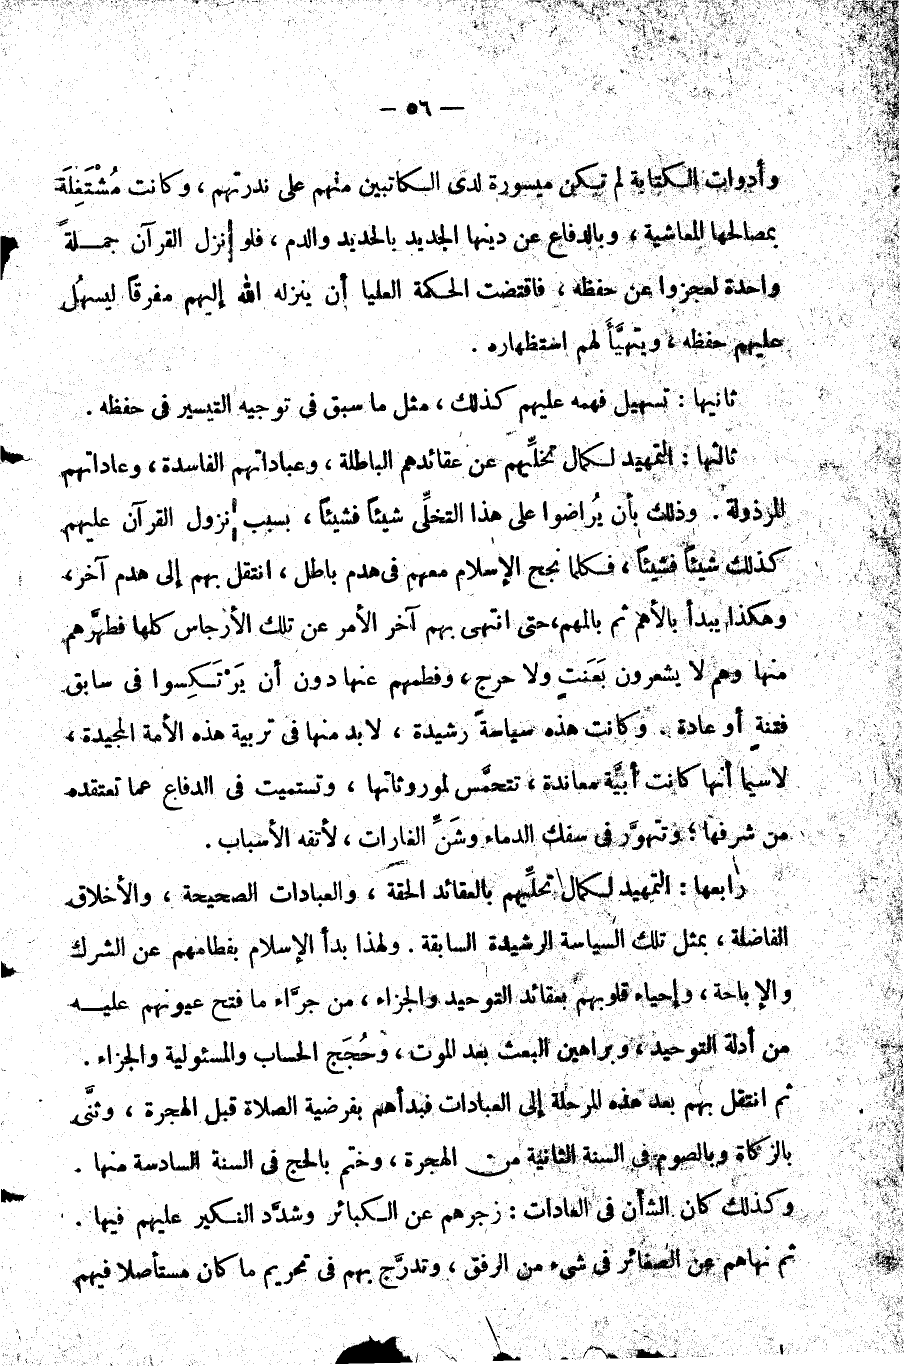 — ٥٦ —
وأدوات الكتابة لم تكن ميسورة لدى الكاتبين منهم على ندرتهم ، وكانت مُشْتَغِلَة
بمصالحها المعاشية ، وبالدفاع عن دينها الجديد بالحديد والدم ، فلو نزل القرآن جملةً
واحدة لعجزوا عن حفظه ، فاقتضت الحكمة العليا أن ينزله الله إليهم مفرقاً ليسهُل
عليهم حفظه ، ويتهيَّأَ لهم استظهاره .
ثانيها : تسهيل فهمه عليهم كذلك ، مثل ما سبق فى توجيه التيسير فى حفظه .
ثالثها : التمهيد لكمال تخلِّيهم عن عقائدهم الباطلة ، وعباداتهم الفاسدة ، وعاداتهم
المرذولة . وذلك بأن يُراضوا على هذا التخلِّى شيئاً فشيئاً ، بسبب نزول القرآن عليهم
كذلك شيئاً فشيئاً ، فكلما نجح الإسلام معهم فى هدم باطل ، انتقل بهم إلى هدم آخر ،
وهكذا يبدأ بالأهم ثم بالمهم، حتى انتهى بهم آخر الأمر عن تلك الأرجاس كلها فطهَّرهم
منها وهم لا يشعرون بعَنَتٍ ولا حرج ، وفطمهم عنها دون أن يَرْتَكِسوا فى سابق
فتنةٍ أو عادة . وكانت هذه سياسةً رشيدة ، لابد منها فى تربية هذه الأمة المجيدة ،
لاسيما أنها كانت أبيَّة معاندة ، تتحمَّس لموروثاتها ، وتستميت فى الدفاع عما تعتقده
من شرفها ؛ وتتهوَّر فى سفك الدماء وشَنِّ الغارات ، لأتفه الأسباب .
رابعها : التمهيد لكمال تحلِّيهم بالعقائد الحقة ، والعبادات الصحيحة ، والأخلاق
الفاضلة ، بمثل تلك السياسة الرشيدة السابقة . ولهذا بدأ الإسلام بفطامهم عن الشرك
والإباحة ، وإحياء قلوبهم بعقائد التوحيد والجزاء ، من جرَّاء ما فتح عيونهم عليــه
من أدلة التوحيد ، وبراهين البعث بعد الموت ، وحُجَج الحساب والمسئولية والجزاء .
ثم انتقل بهم بعد هذه المرحلة إلى العبادات فبدأهم بفرضية الصلاة قبل الهجرة ، وثنَّى
بالزكاة وبالصوم فى السنة الثانية من الهجرة ، وختم بالحج فى السنة السادسة منها .
وكذلك كان الشأن فى العادات : زجرهم عن الكبائر وشدَّد النكير عليهم فيها .
ثم نهاهم عن الصغائر فى شىء من الرفق ، وتدرَّج بهم فى تحريم ما كان مستأصلا فيهم